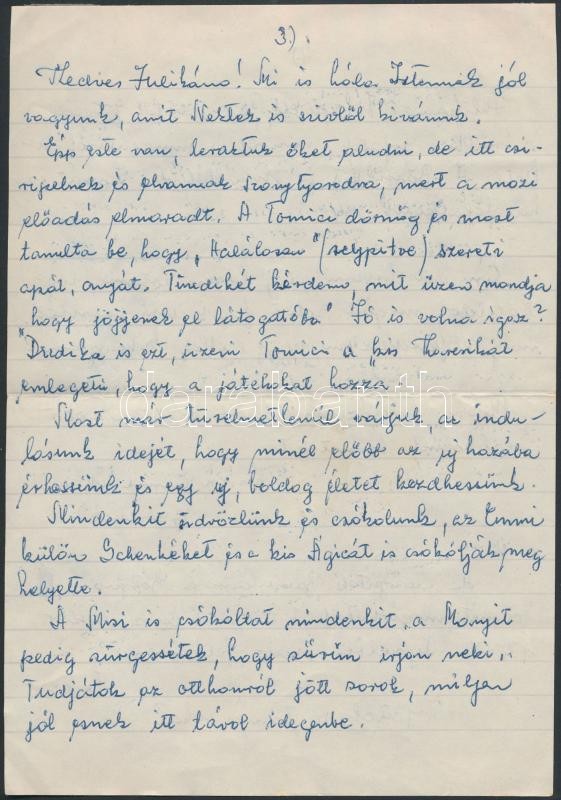 3.)
Kedves Julikáno! Mi is hála Istennek jól
vagyunk, amit Nektek is szivből kivánunk.
Épp este van, leraktuk őket aludni, de itt csi-
ripelnek és elvannak szontyorodva, mert a mozi
előadás elmaradt. A Tomici dörmög és most
tanulta be, hogy „Halálosan" (selypitve) szereti
apát, anyát. Tinedikét kérdem, mit üzen mondja
„hogy jöjjenek el látogatóba" Jó is volna igaz?
Dudika is ezt, üzeni Tomici a kis
emlegeti, hogy a játékokat hozza.
Most már türelmetlenül várjuk, az indu-
lásunk idejét, hogy minél előbb az új hazába
érhessünk és egy uj, boldog életet kezdhessünk.
Mindenkit üdvözlünk és csókolunk, az Emmi
külön Schenkéket és a kis Ágicát is csókolják meg
helyette.
A Misi is csókoltat mindenkit, a Manyit
pedig sürgessétek, hogy sűrűn irjon neki,.
Tudjátok az otthonról jött sorok, milyen
jól esnek itt távol idegenbe.
darabanth